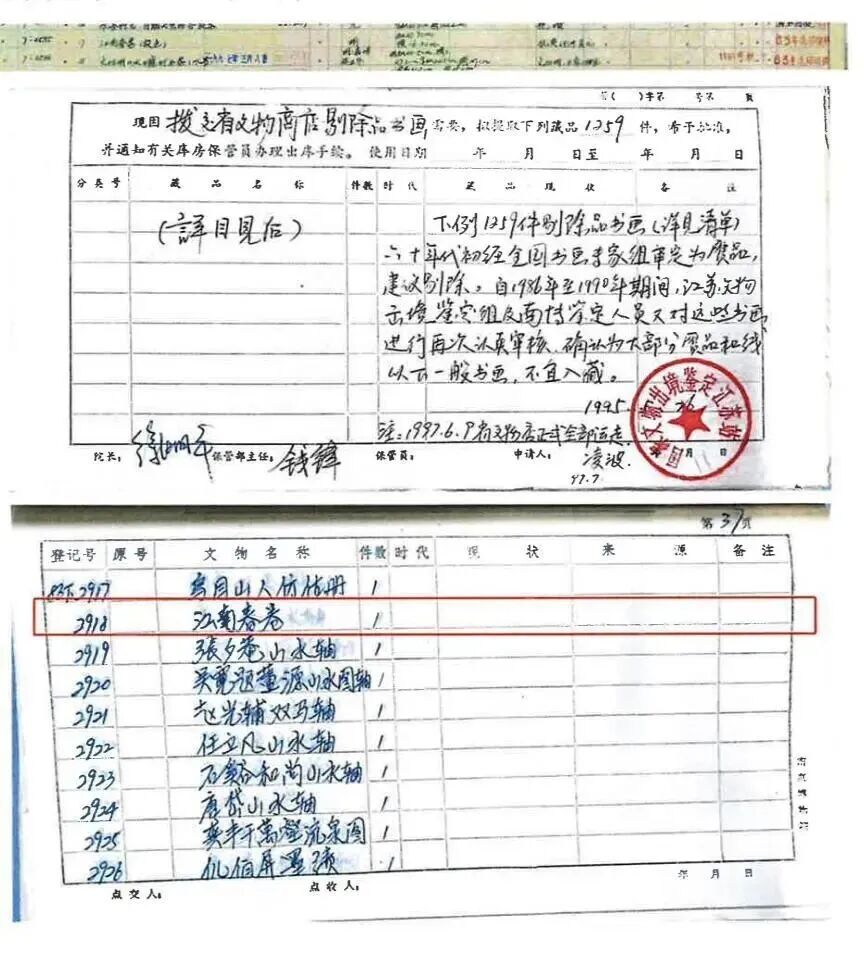 7:0035 7 江南春卷(设色) 明 63年
一九九七年三月八日 63年
第( )字第 号第 页
现因 拨交省文物商店剔除品书画 需要，拟提取下列藏品 1259 件，希予批准，
并通知有关库房保管员办理出库手续。 使用日期 年 月 日至 年 月 日
分类号 藏品名称 件数 时代 藏品现状 备注
(详目见后)
下例1259件剔除品书画(详见清单)
六十年代初经全国书画专家组审定为赝品，
建议剔除。自1986年至1990年期间，江苏文物
出境鉴定组及南博鉴定人员又对这些书画
进行再次认真审核，确认为大部分赝品和线
以下一般书画，不宜入藏。
1995. 26
注:1997.6.9省文物店正式全部运走
国家文物出境鉴定江苏站
院长： 徐湖平 保管部主任： 钱锋 保管员： 申请人： 凌波 月 日
97.7.
第37页
登记号 原号 文物名称 件数 时代 现状 来源 备注
2917 房月山人仿估册 1
2918 江南春卷 1
2919 張夕菴山水轴 1
2920 吴宽题董源山水图轴 1
2921 赵光辅双马轴 1
2922 任立凡山水轴 1
2923 石谿和尚山水轴 1
2924 唐岱山水轴 1
2925 龚半千萬壑流泉图 1
2926 伊佰屏墨蹟 1
点交人： 点收人： 年 月 日